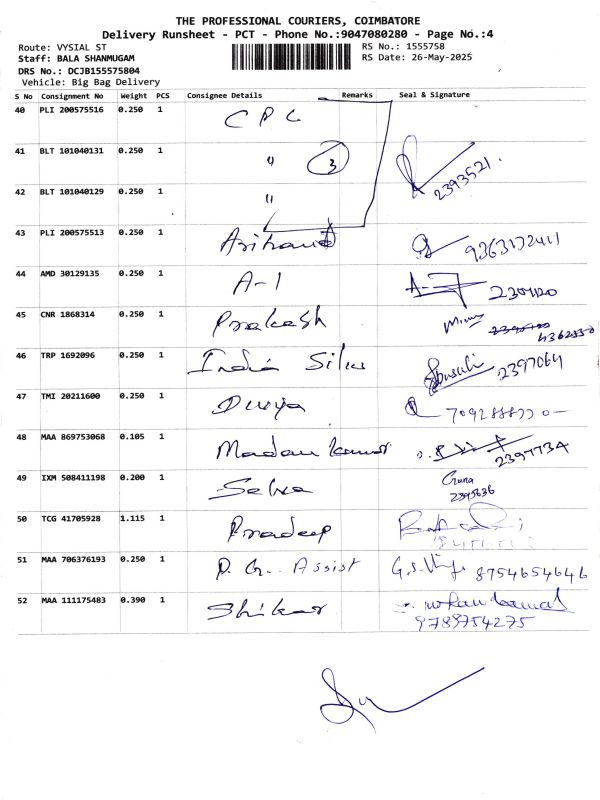 THE PROFESSIONAL COURIERS, COIMBATORE
Delivery Runsheet - PCT - Phone No.:9047080280 - Page No.:4
Route: VYSIAL ST
RS No.: 1555758
Staff: BALA SHANMUGAM
RS Date: 26-May-2025
DRS No.: DCJB155575804
Vehicle: Big Bag Delivery
S No Consignment No Weight PCS Consignee Details Remarks Seal & Signature
40 PLI 200575516 0.250 1 C P C
41 BLT 101040131 0.250 1 " 3
2393521
42 BLT 101040129 0.250 1 "
43 PLI 200575513 0.250 1 Arihant
44 AMD 30129135 0.250 1 A-1
45 CNR 1868314 0.250 1 Prakash
46 TRP 1692096 0.250 1 India Silks 2397064
47 TMI 20211600 0.250 1 Divya
48 MAA 869753068 0.105 1 Madan Kumar 2397734
49 IXM 508411198 0.200 1 Selva Guna
2395636
50 TCG 41705928 1.115 1 Pradeep
51 MAA 706376193 0.250 1 P. G. Assist 8754654646
52 MAA 111175483 0.390 1 Shikar
9789754275